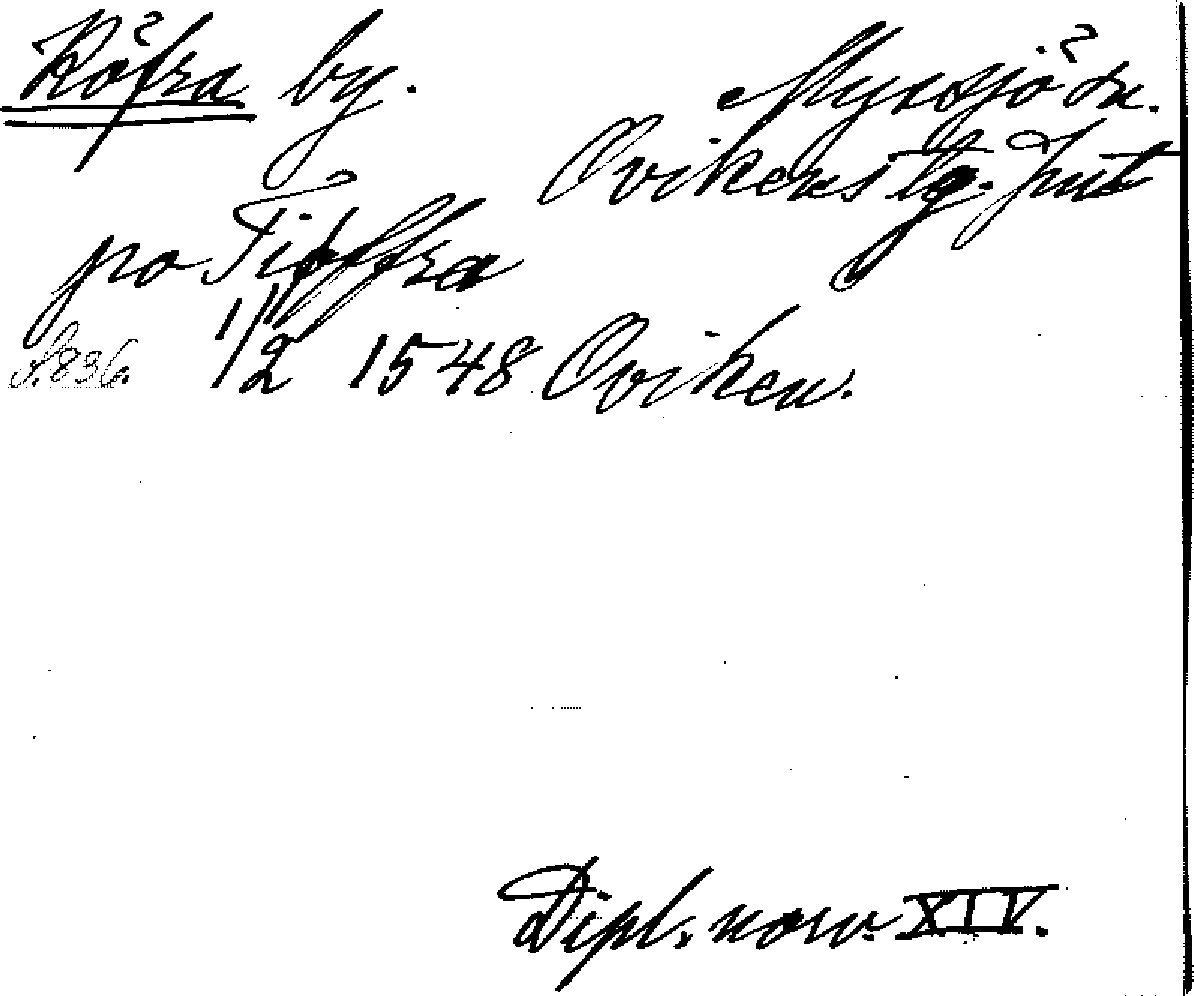 Köfra by. Myssjö sn.
Ovikens tg. Jmt
po Tiöffra
S.836. 1/2 1548 Oviken.
Dipl. norv. XIV.